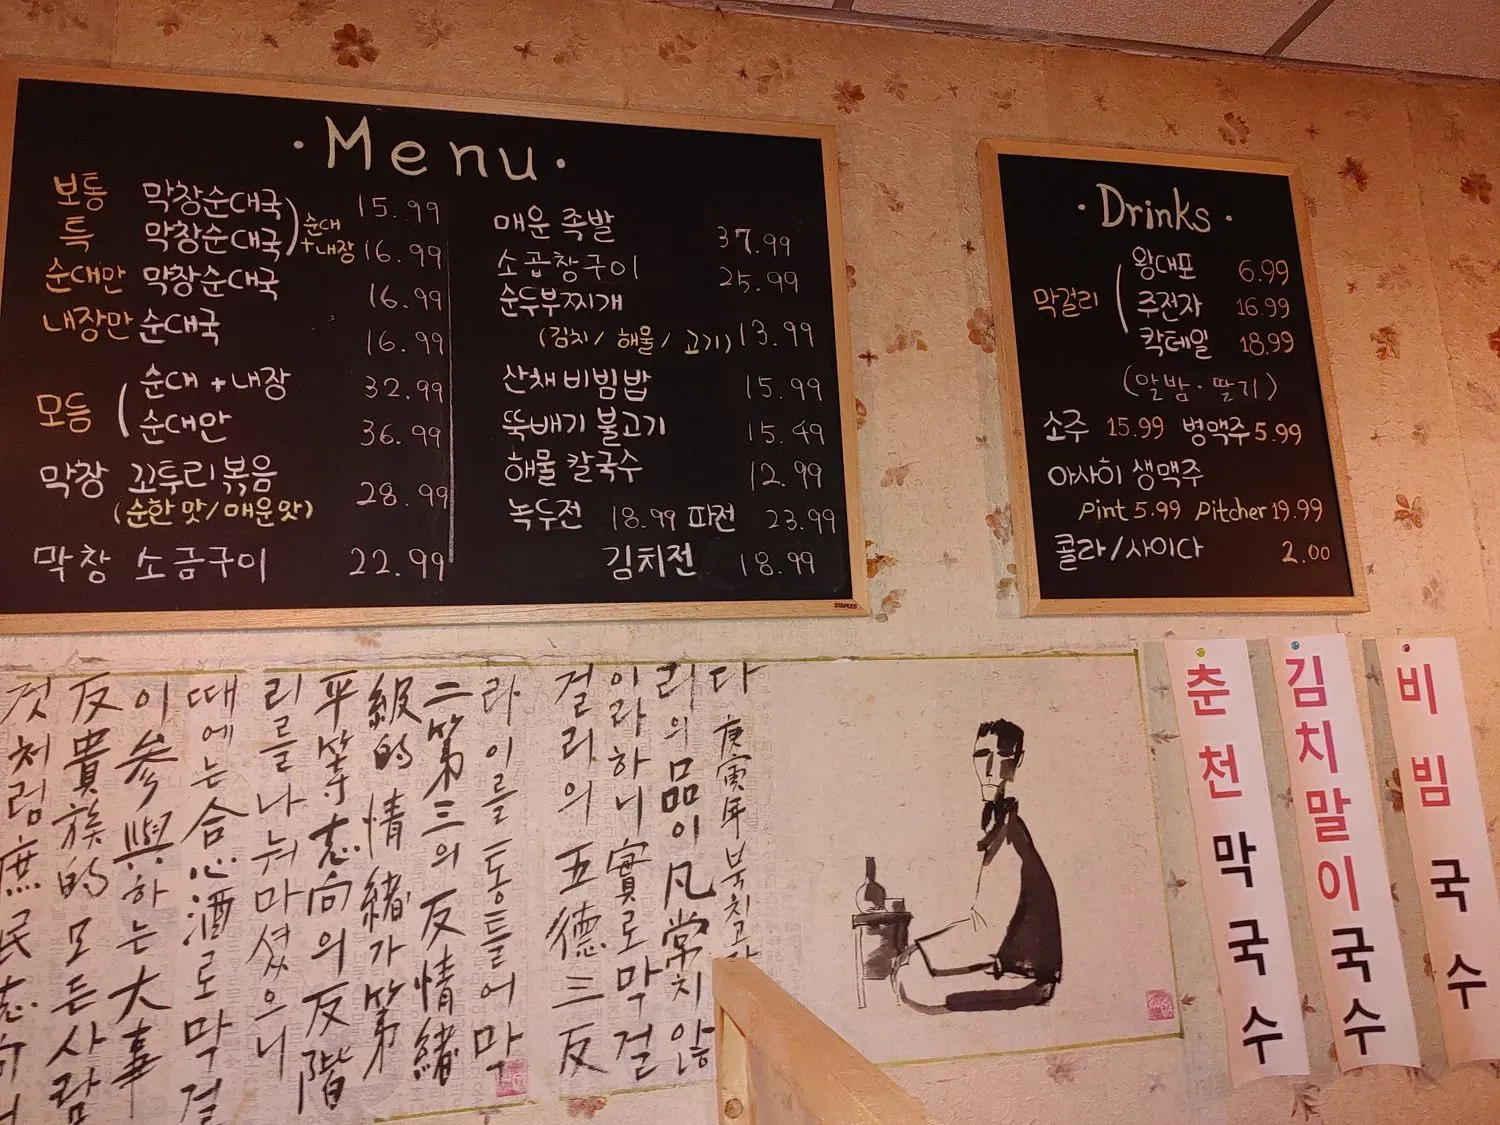 · Menu ·
보통 막창순대국 15.99
특 막창순대국 16.99
순대
+내장
순대만 막창순대국 16.99
내장만 순대국 16.99
모듬
순대+내장 32.99
순대만 36.99
막창 꼬투리볶음 28.99
(순한맛/매운맛)
막창 소금구이 22.99
매운족발 37.99
소곱창구이 25.99
순두부찌개
(김치/해물/고기) 13.99
산채비빔밥 15.99
뚝배기 불고기 15.49
해물 칼국수 12.99
녹두전 18.99 파전 23.99
김치전 18.99
STAPLES
· Drinks ·
막걸리
왕대포 6.99
주전자 16.99
칵테일 18.99
(알밤·딸기)
소주 15.99 병맥주 5.99
아사히 생맥주
Pint 5.99 Pitcher 19.99
콜라/사이다 2.00
다 庚寅年 북치고
리의 品이 凡常치 않
이라하니 實로 막걸
걸리의 五德三反
라 이를 통틀어 막
二第三의 反情緖
級的 情緖가 第
平等志向의 反階
리를 나눠마셨으니
때에는 合心酒로 막걸
이 參與하는 大事
反貴族的 모든사람
것처럼 庶民志
춘천막국수
김치말이국수
비빔국수